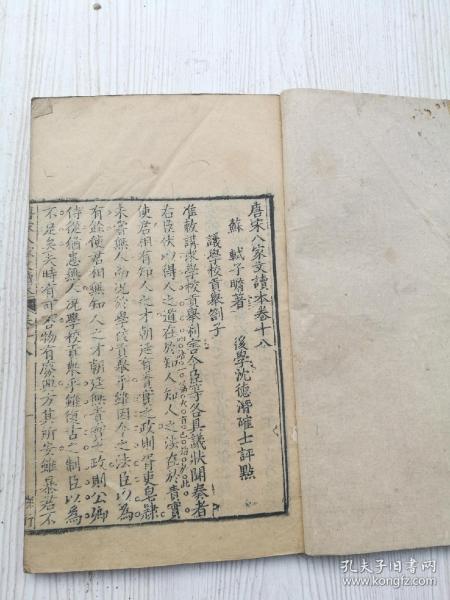 唐宋八家文讀本卷十八
蘇軾子瞻著 後學沈德潛確士評點
議學校貢舉劄子
准敕講求學校貢舉利害令臣等各具議狀聞奏者
右臣伏以得人之道在於知人知人之法在於責實
使君相有知人之才朝廷有責實之政則胥吏皂隸
未嘗無人而況於學校貢舉乎雖因今之法臣以為
有餘使君相無知人之才朝廷無責實之政則公卿
侍從常患無人況學校貢舉乎雖復古之制臣以為
不足矣夫時有可否物有廢興方其所安雖暴君不
孔夫子旧书网
www.kongfz.com